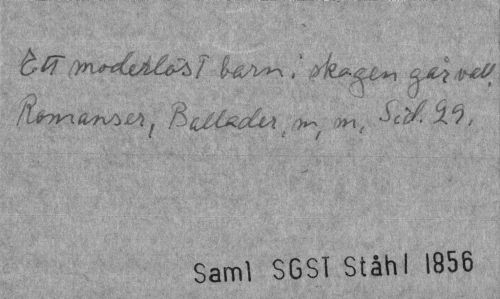 Ett moderlöst barn i skogen går vall.
Romanser, Ballader, m, m, Sid. 29.
Saml SGST Ståhl 1856